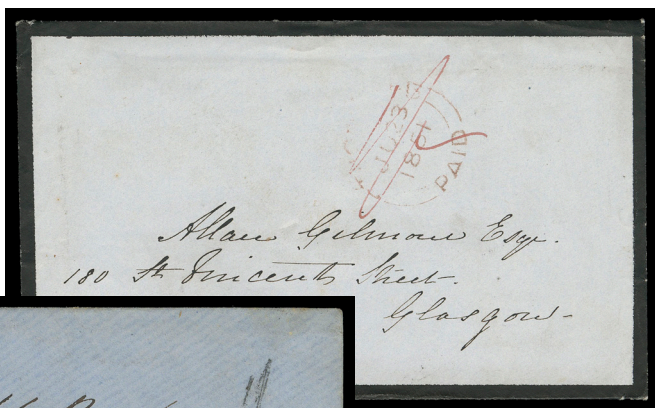 JU 23
1851
PAID
Allan Gilmour Esqr.
180 St Vincents Street.
Glasgow-